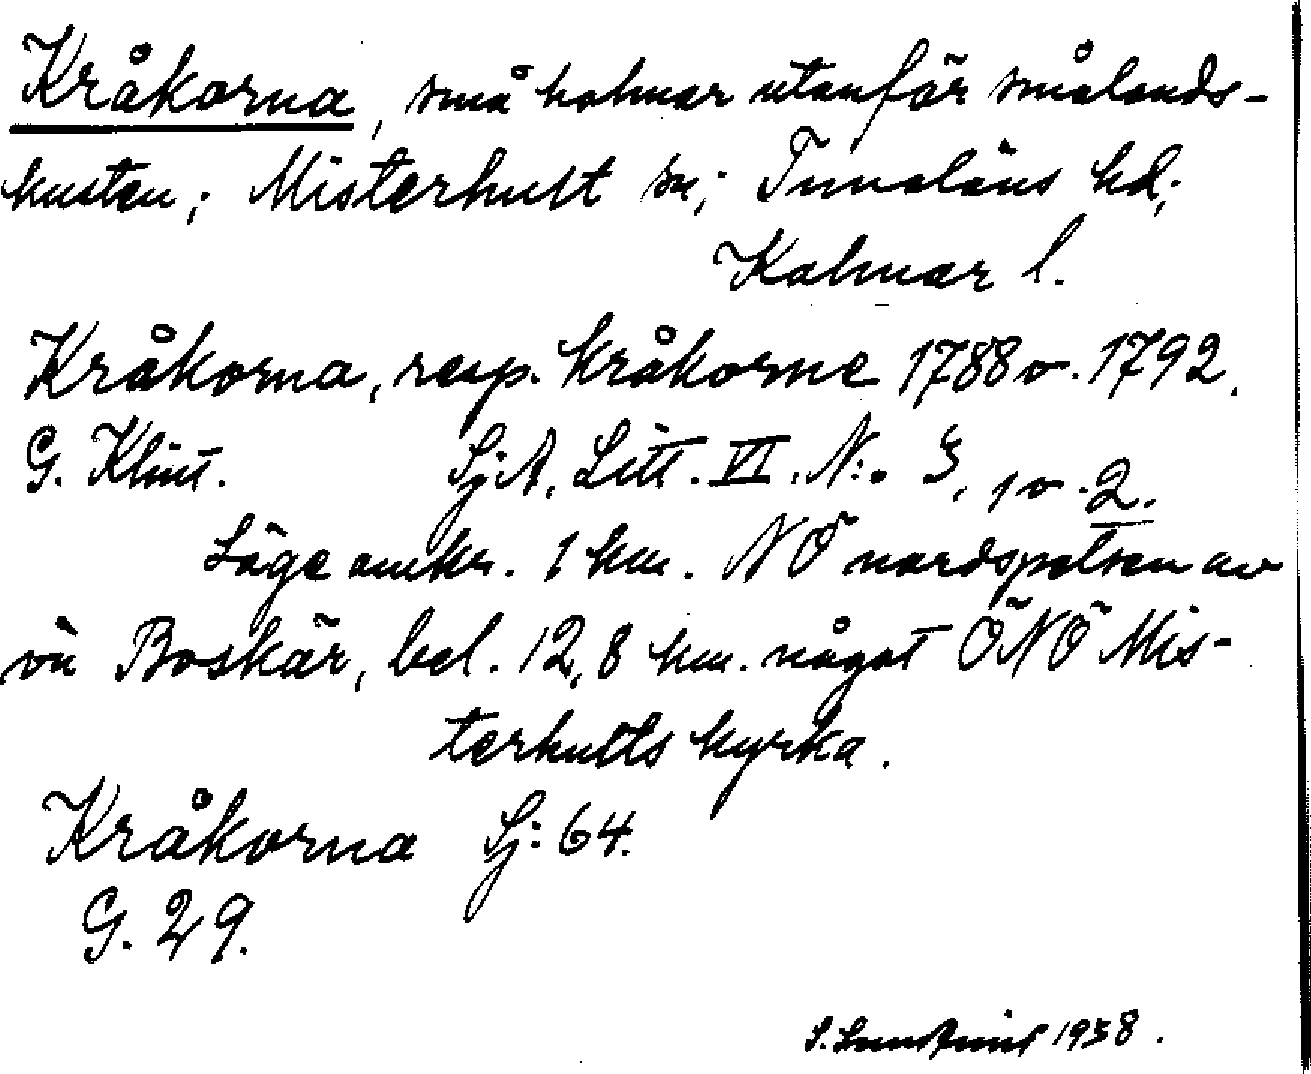 Kråkorna, små holmar utanför smålands-
kusten; Misterhult sn; Tunaläns hd;
Kalmar l.
Kråkorna, resp. Kråkorne 1788 o. 1792.
G. Klint. Sj:A. Litt. VI. N:o 3, 1 o. 2.
Läge omkr. 1 km. NÖ nordspetsen av
ön Boskär, bel. 12,8 km. något ÖNÖ Mis-
terhults kyrka.
Kråkorna Sj: 64.
G. 29.
S. 1938.